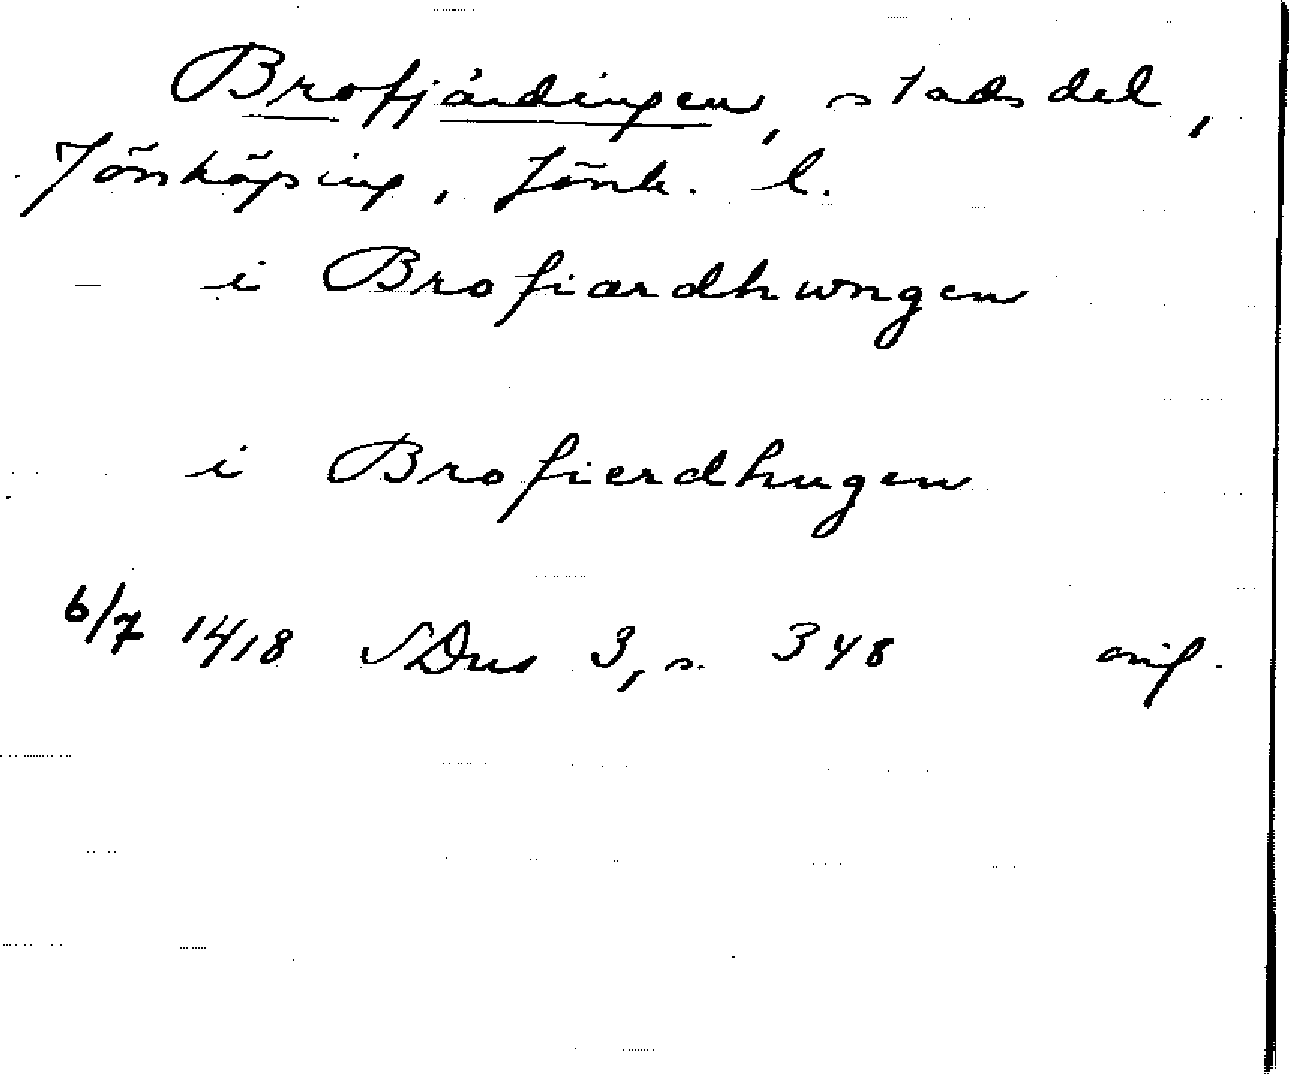 Brofjärdingen, stadsdel,
Jönköping, Jönk. l.
i Brofiærdhwngen
i Brofierdhugen
6/7 1418 SDns 3, s. 348 orig.